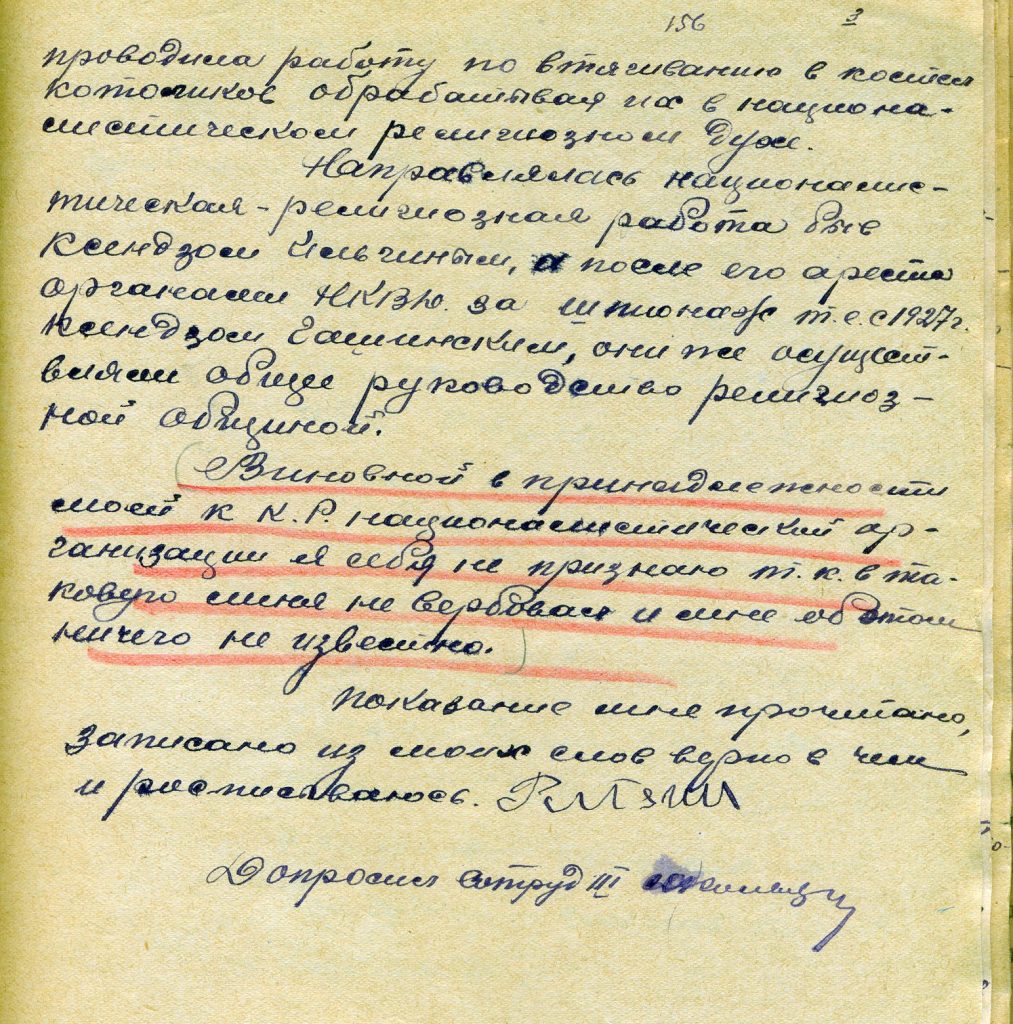 156 3
проводила работу по втягиванию в костел
католиков обрабатывая их в национа-
листическом религиозном духе.
Направлялась националис-
тическая-религиозная работа быв
ксендзом Ильгиным, а после его ареста
органами НКВД. за шпионаж т.е. с 1927 г.
ксендзом они же осущест-
вляли общее руководство религиоз-
ной общиной.
Виновной в принадлежности
моей к К.Р. националистический ор-
ганизации я себя не признаю т.к. в та-
ковую меня не вербовал и мне об этом
ничего не известно.
Показание мне прочитано,
записано из моих слов верно в чем
и росписываюсь.
Допросил сотруд III